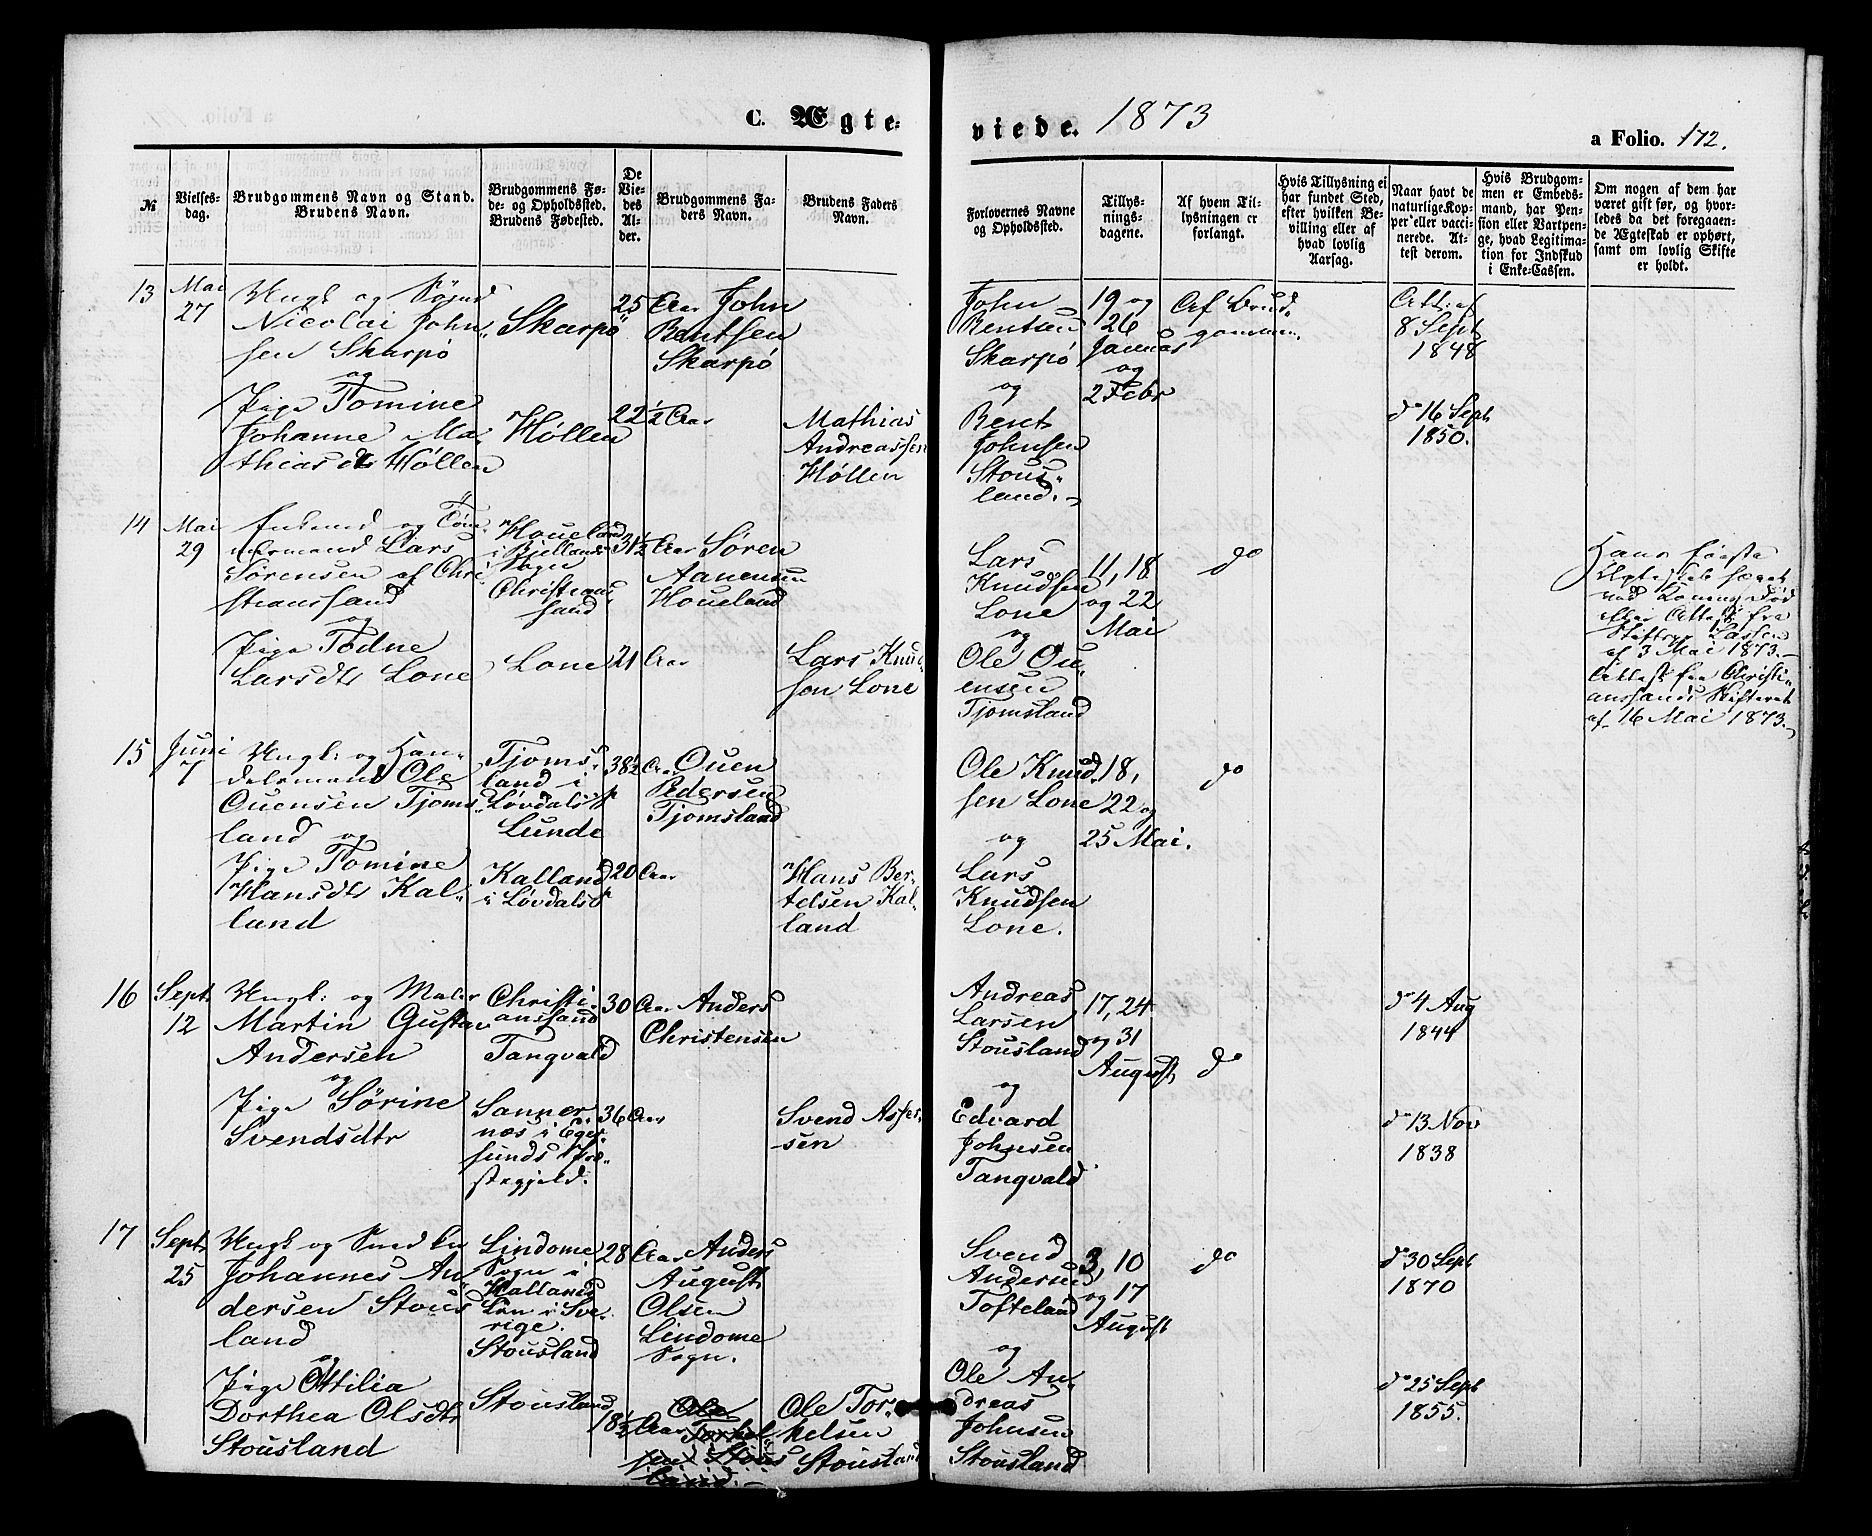 C. Ægte-
viede. 1873
a Folio. 172.
№
Vielses-
dag.
Brudgommens Navn og Stand.
Brudens Navn.
Brudgommens Fø-
de- og Opholdssted.
Brudens Fødested.
De
Vie-
des
Al-
der.
Brudgommens Fa-
ders Navn.
Brudens Faders
Navn.
Forlovernes Navne
og Opholdssted.
Tillys-
nings-
dagene.
Af hvem Til-
lysningen er
forlangt.
Hvis Tillysning ei
har fundet Sted,
efter hvilken Be-
villing eller af
hvad lovlig
Aarsag.
Naar havt de
naturlige Kop-
per eller vacci-
nerede. At-
test derom.
Hvis Brudgom-
men er Embeds-
mand, har Pen-
sion eller Vartpen-
ge, hvad Legitima-
tion for Indskud
i Enke-Cassen.
Om nogen af dem har
været gift før, og hvor-
ledes da det foregaaen-
de Ægteskab er ophørt,
samt om lovlig Skifte
er holdt.
13
Mai
27
Ungk og
Nicolai John-
sen Skarpö
og
Pige Tomine
Johanne Ma-
thiasdtr Höllen
Skarpö
Höllen
25 Aar
22½ Aar
John
Bentsen
Skarpö
Mathias
Andreassen
Höllen
John
Bentsen
Skarpö
og
Bent
Johnsen
Stous-
land.
19 og
26
Januar
og
2 Febr
Af Brud-
gommen.
Att: af
8 Sept
1848
do 16 Sept
1850.
14
Mai
29
Enkemd og Töm-
mermand Lars
Sörensen af Chri-
stianssand
og
Pige Todne
Larsdtr Lone
Houeland
i Bjellands
Sogn
Christians-
sand
Lone
31½ Aar
21 Aar
Sören
Aanensen
Houeland
Lars Knud-
sen Lone
Lars
Knudsen
Lone
og
Ole Ou-
ensen
Tjomsland
11, 18
og 22
Mai
do
Hans förste
Ægteskab hævet
ved Konens Död
efter Attest fra
Stiftsp. Lassen
af 3 Mai 1873.
Attest fra Christi-
anssands Skifteret
af 16 Mai 1873.
15
Juni
7
Ungk: og Han-
delsmand Ole
Ouensen Tjoms-
land og
Pige Tomine
Hansdtr Kal-
land
Tjoms-
land i
Lövdals
Lunde
Kalland
i Lövdals
38½ Aar
20 Aar
Ouen
Pedersen
Tjomsland
Hans Ber-
telsen Kal-
land
Ole Knud-
sen Lone
og
Lars
Knudsen
Lone.
18,
22 og
25 Mai.
do
16
Sept
12
Ungk: og Maler
Martin Gustav
Andersen
og
Pige Sörine
Svendsdtr
Christi-
anssand
Tangvald
Sanner-
næs i Eger-
sunds Præ-
stegjeld.
30 Aar
36 Aar
Anders
Christensen
Svend Asser-
sen
Andreas
Larsen
Stousland
og
Edvard
Johnsen
Tangvald
17, 24
og 31
August
do
do 4 Aug
1844
do 13 Nov
1838
17
Sept
25
Ungk og
Johannes An-
dersen Stous-
land
og
Pige Ottilia
Dorthea Olsdtr
Stousland
Lindome
Sogn i
Hallands
Län i Sve-
rige.
Stousland
Stousland
28 Aar
18½ Aar
Anders
August
Olsen
Lindome
Sogn.
Ole
Torkel-
sen Stous-
land.
Ole Tor-
kelsen
Stousland
Svend
Andersen
Tofteland
og
Ole An-
dreas
Johnsen
Stousland
3, 10
og 17
August
do
do 30 Sept
1870
do 25 Sept
1855.